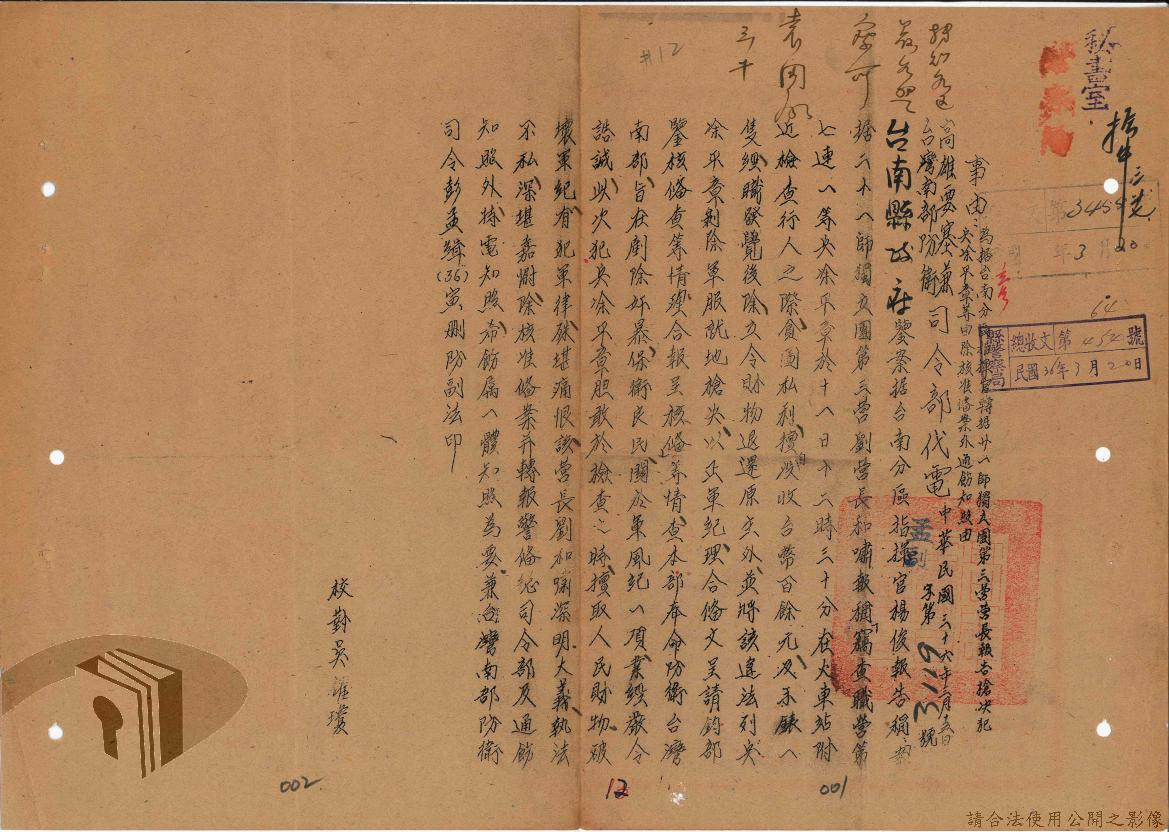 秘書室
事由：為据台南分區指揮官轉据廿八師獨立團第三營營長報告槍決犯
兵凃平章等由除核准备案外通飭知照由
高雄要塞兼
台灣南部防衛司令部代電
中華民國三十六年三月十五日
字第3119號
台南縣政府鑒案据台南分區指揮官楊俊報告稱
据二十八師獨立團第三營劉營長和嘯報稱竊查職營第
七連一等兵凃平章於十八日十二時三十分在火車站附
近檢查行人之際貪圖私利擅自沒收台幣百餘元及手錶一
隻經職發覺後除立令財物退還原主外並將該違法列兵
凃平章剝除軍服就地槍決以正軍紀理合备文呈請鈞部
鑒核备查等情理合報呈核备等情查本部奉命防衛台灣
南部旨在剷除奸暴保衛良民關於軍風紀一項業經嚴令
誥誡此次犯兵凃平章胆敢於檢查之時擅取人民財物破
壞軍紀有犯軍律殊堪痛恨該營長劉和嘯深明大義執法
不私深堪嘉慰除核准备案并轉報警备總司令部及通飭
知照外特電知照希飭屬一體知照為要兼台灣南部防衛
司令彭孟緝(36)寅刪防副法印
校對吳
孟副
縣警察局
總收文第454號
民國36年3月20日
第3458
年3月20
64
#12
12
001
002
請合法使用公開之影像